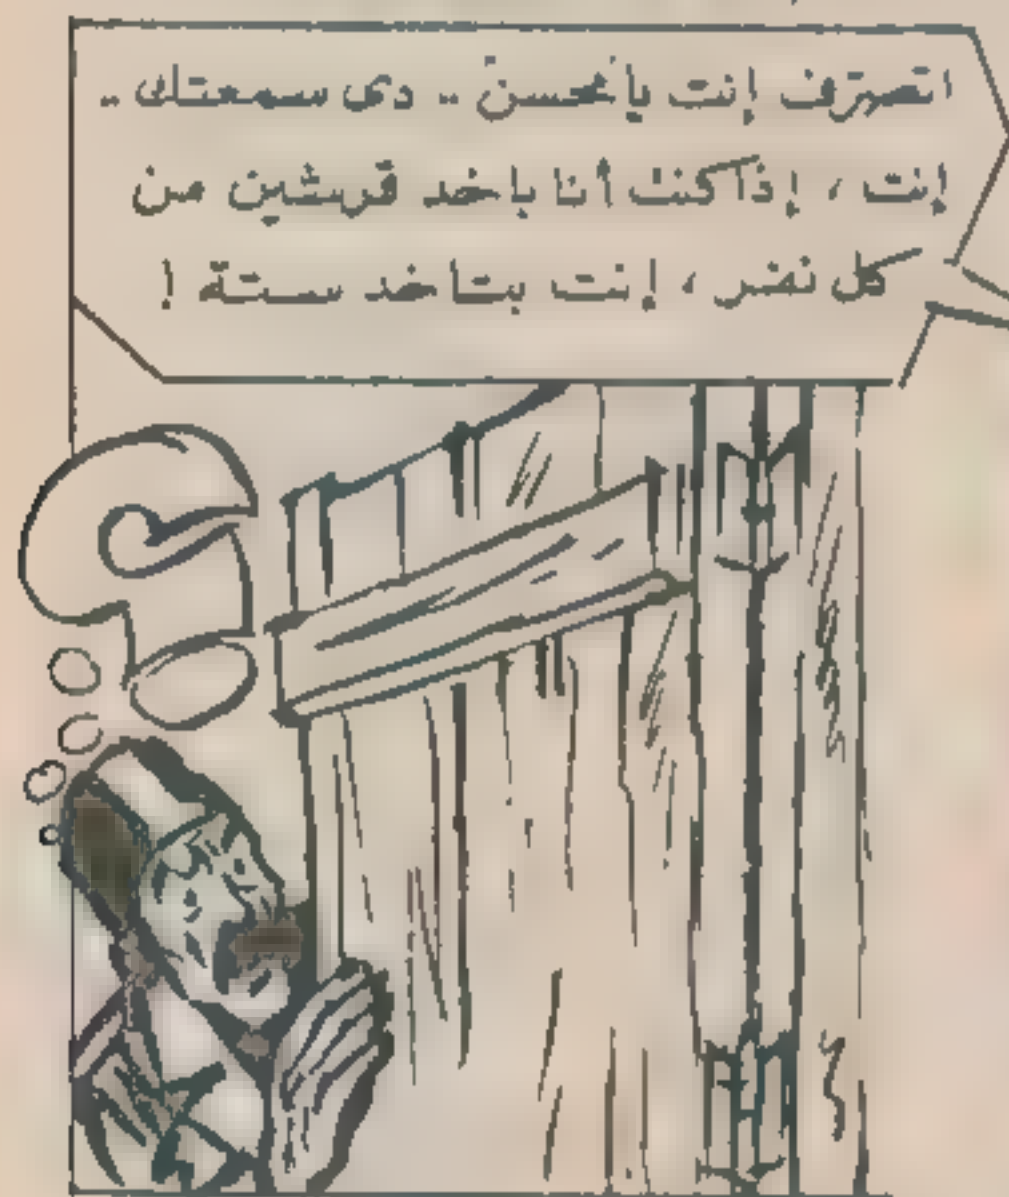 اتصرّف إنت يا محسن .. دى سمعتك ..
إنت ، إذا كنت أنا باخد قرشين من
كل نفر ، إنت بتاخد ستة !